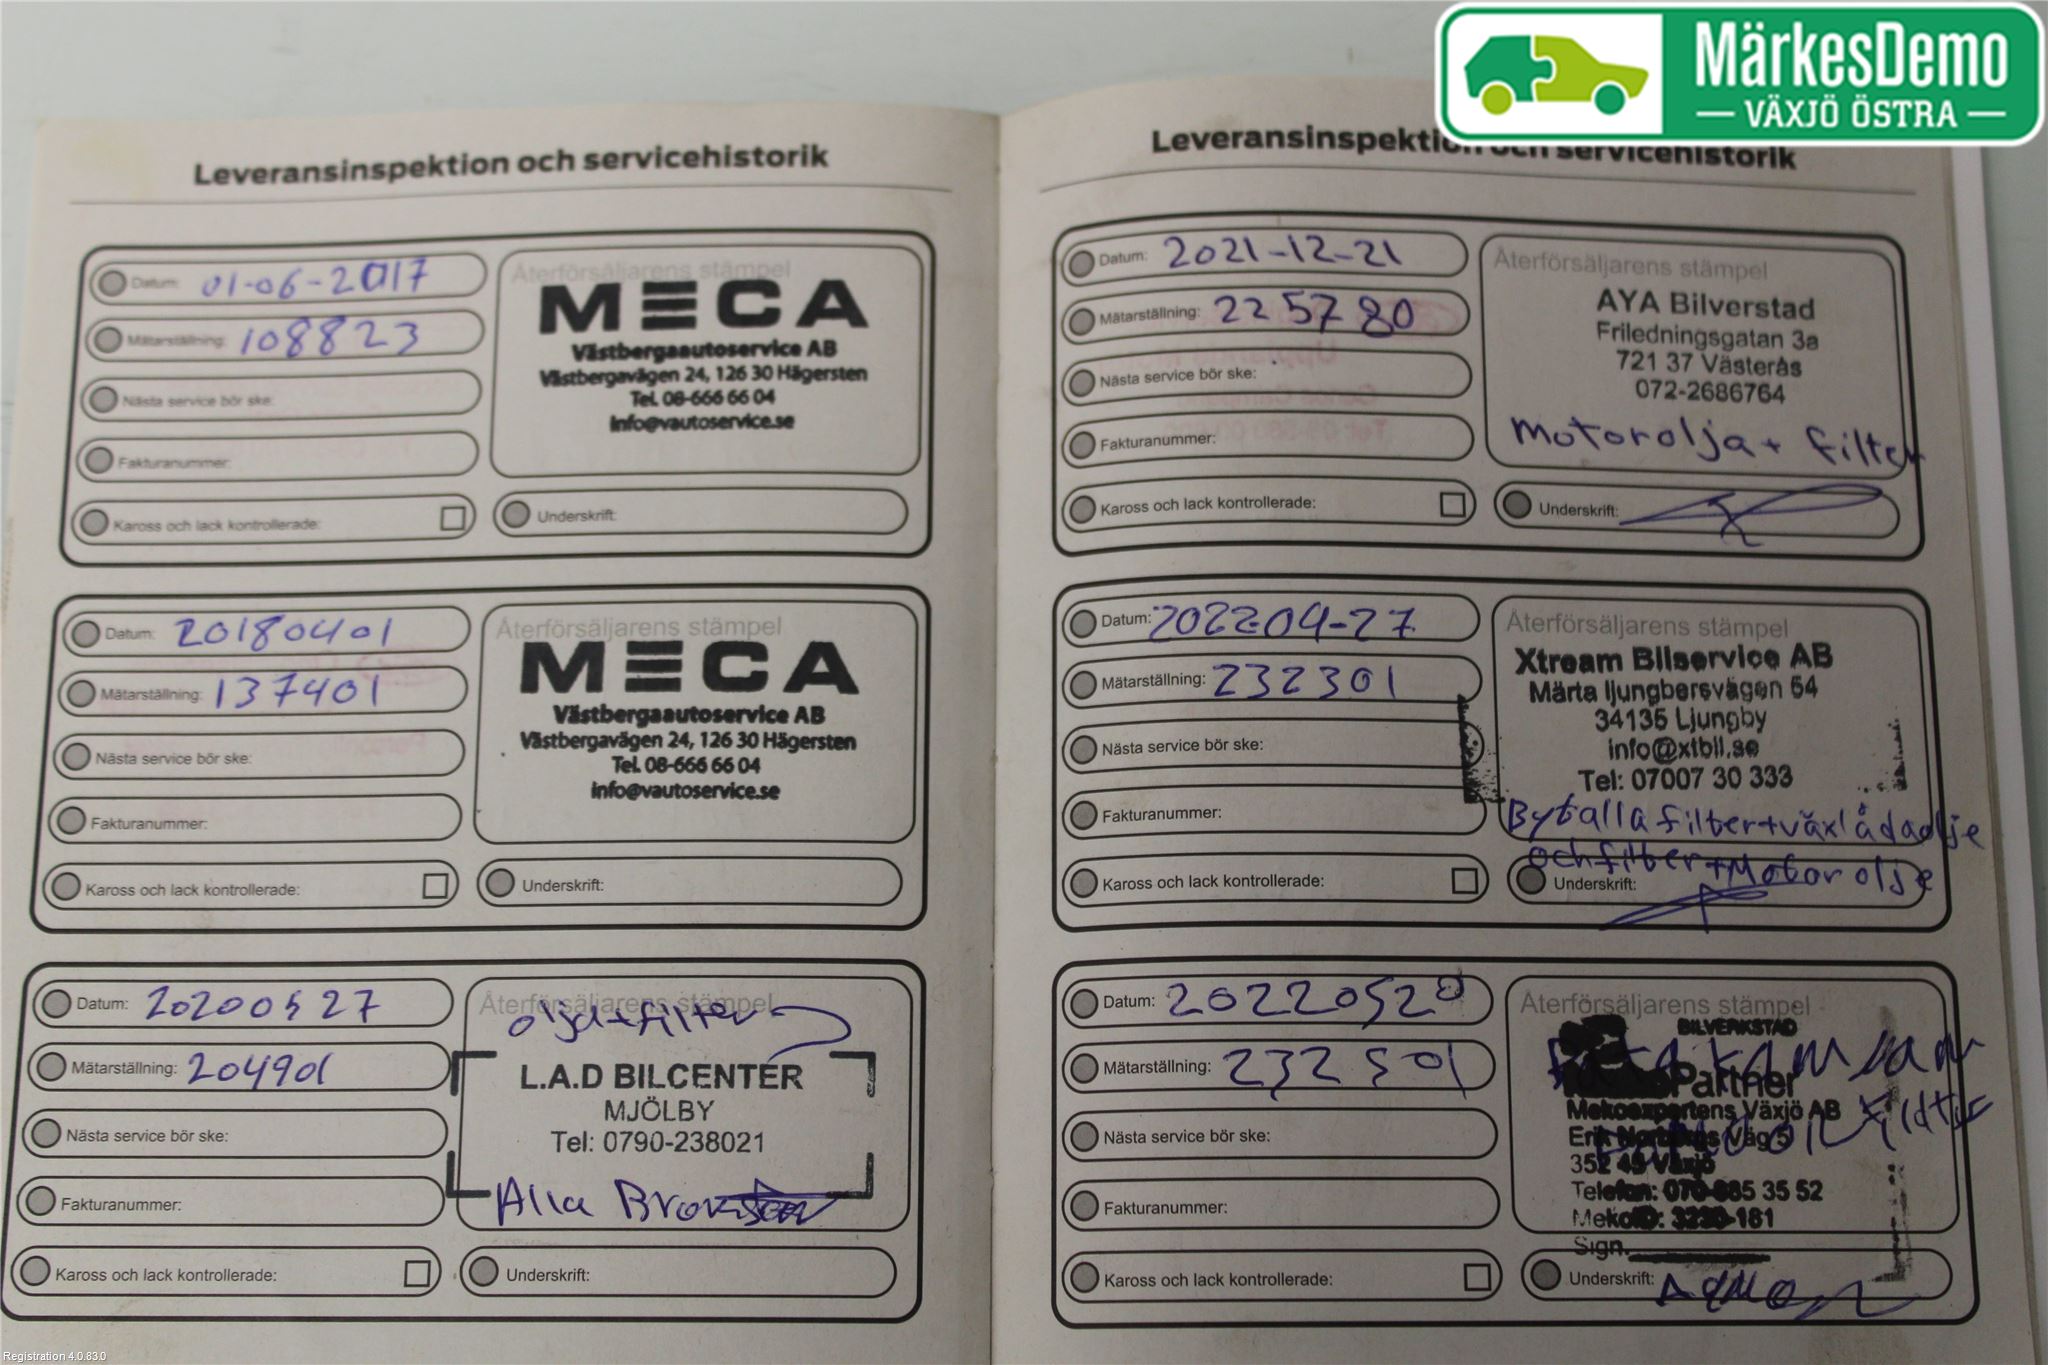 MärkesDemo
VÄXJÖ ÖSTRA
Leveransinspektion och servicehistorik
Datum: 01-06-2017
Mätarställning: 108823
Nästa service bör ske:
Fakturanummer:
Kaross och lack kontrollerade:
Återförsäljarens stämpel
MECA
Västbergaautoservice AB
Västbergavägen 24, 126 30 Hägersten
Tel. 08-666 66 04
info@vautoservice.se
Underskrift:
Datum: 20180401
Mätarställning: 137401
Nästa service bör ske:
Fakturanummer:
Kaross och lack kontrollerade:
Återförsäljarens stämpel
MECA
Västbergaautoservice AB
Västbergavägen 24, 126 30 Hägersten
Tel. 08-666 66 04
info@vautoservice.se
Underskrift:
Datum: 20200527
Mätarställning: 204901
Nästa service bör ske:
Fakturanummer:
Kaross och lack kontrollerade:
Återförsäljarens stämpel
olja+filter
L.A.D BILCENTER
MJÖLBY
Tel: 0790-238021
Alla
Underskrift:
Leveransinspektion och servicehistorik
Datum: 2021-12-21
Mätarställning: 225780
Nästa service bör ske:
Fakturanummer:
Kaross och lack kontrollerade:
Återförsäljarens stämpel
AYA Bilverstad
Friledningsgatan 3a
721 37 Västerås
072-2686764
Motorolja + filter
Underskrift:
Datum: 2022-04-27
Mätarställning: 232301
Nästa service bör ske:
Fakturanummer:
Kaross och lack kontrollerade:
Återförsäljarens stämpel
Xtream Bilservice AB
Märta ljungbersvägen 54
34135 Ljungby
info@xtbil.se
Tel: 07007 30 333
Byt alla filter+växlådaolje
och filter + Motorolje
Underskrift:
Datum: 20220520
Mätarställning: 232501
Nästa service bör ske:
Fakturanummer:
Kaross och lack kontrollerade:
Återförsäljarens stämpel
BILVERKSTAD
Partner
Mekoexpertens Växjö AB
Väg 5
352 45 Växjö
Telefon: 35 52
MekoID: 3230-181
Sign.
Underskrift:
Registration 4.0.83.0